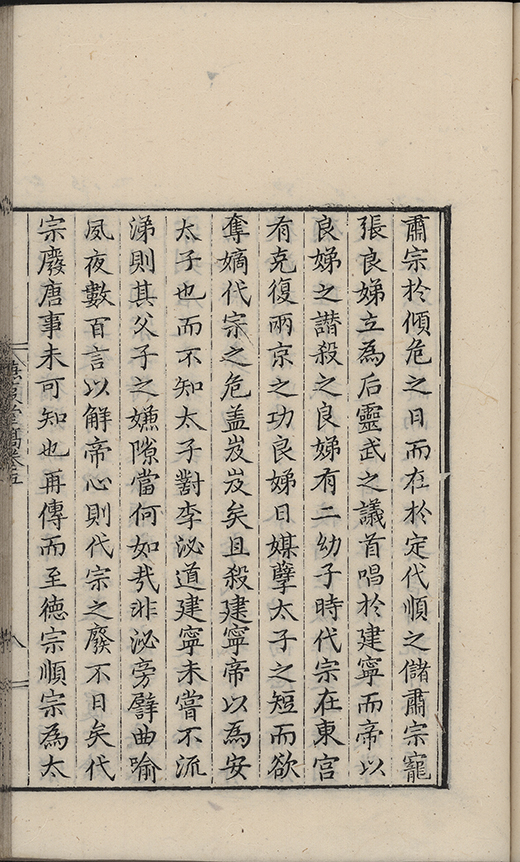 肅宗於傾危之日而在於定代順之儲肅宗寵
張良娣立為后靈武之議首唱於建寧而帝以
良娣之譖殺之良娣有二幼子時代宗在東宮
有克復兩京之功良娣日媒孽太子之短而欲
奪嫡代宗之危盖岌岌矣且殺建寧帝以為安
太子也而不知太子對李泌道建寧未嘗不流
涕則其父子之嫌隙當何如㦲非泌旁譬曲喻
夙夜數百言以解帝心則代宗之廢不日矣代
宗廢唐事未可知也再傳而至徳宗順宗為太
卷五
八